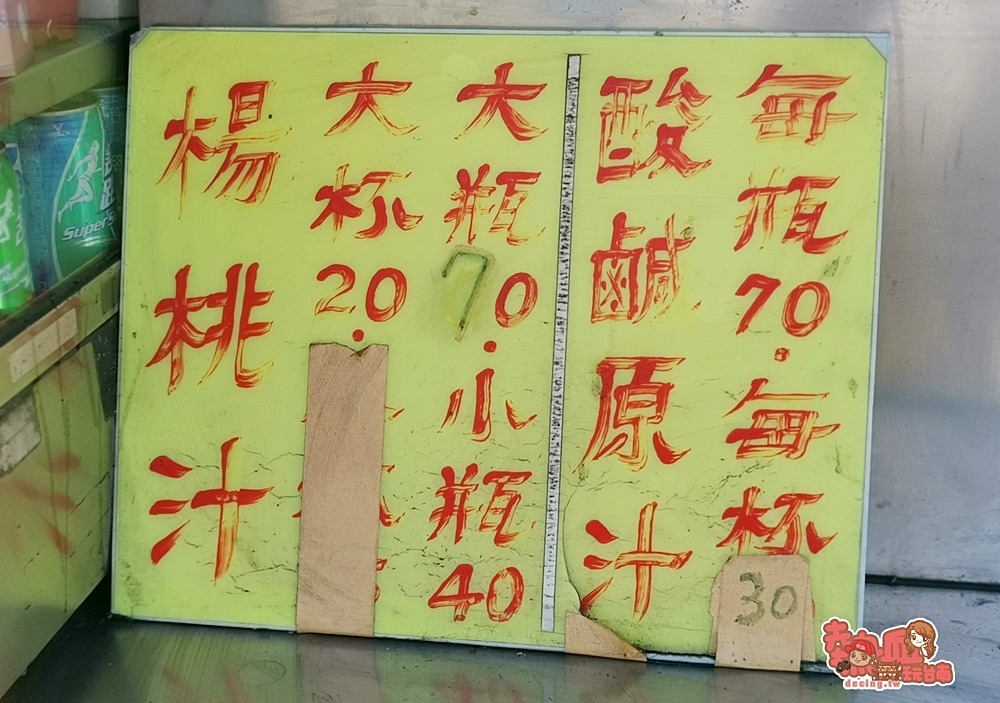 每瓶70.每杯30
酸鹹原汁
大瓶70.小瓶40
大杯20.
楊桃汁
Super
熱血玩台南
decing.tw